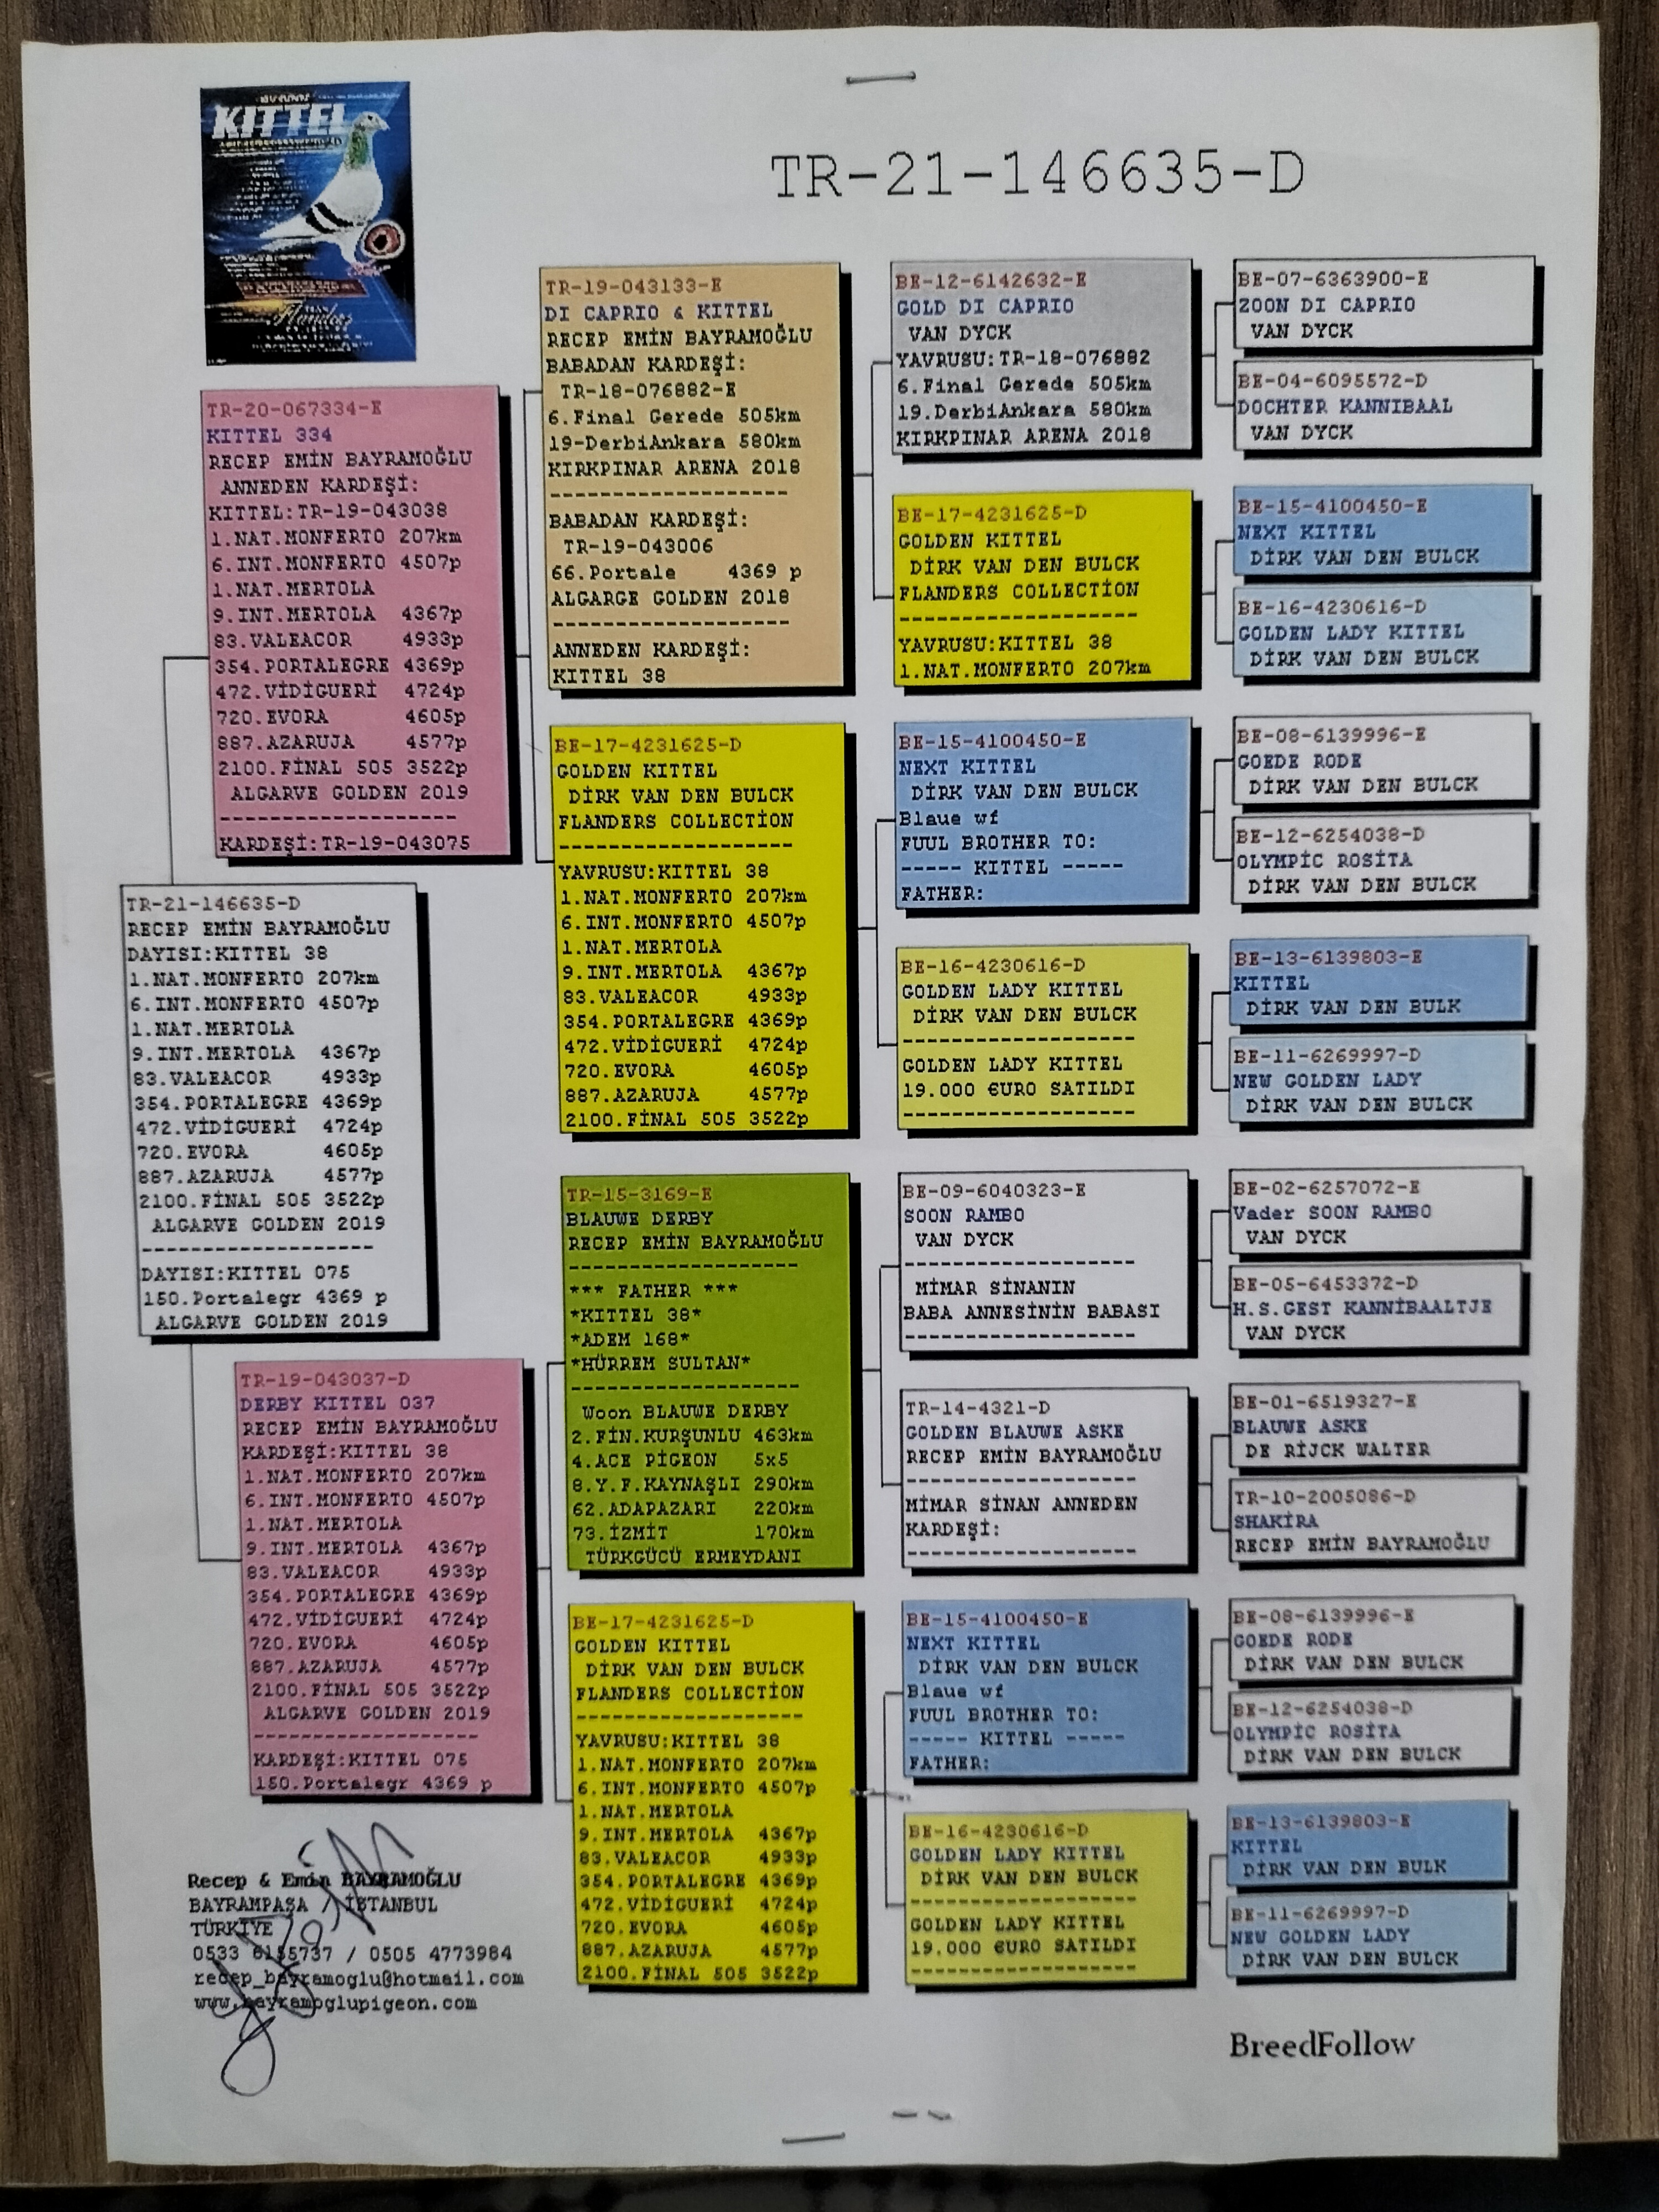 KITTEL
Flanders
TR-21-146635-D
TR-20-067334-E
KITTEL 334
RECEP EMİN BAYRAMOĞLU
ANNEDEN KARDEŞİ:
KITTEL:TR-19-043038
1.NAT.MONFERTO 207km
6.INT.MONFERTO 4507p
1.NAT.MERTOLA
9.INT.MERTOLA 4367p
83.VALEACOR 4933p
354.PORTALEGRE 4369p
472.VİDİGUERİ 4724p
720.EVORA 4605p
887.AZARUJA 4577p
2100.FİNAL 505 3522p
ALGARVE GOLDEN 2019
-------------------
KARDEŞİ:TR-19-043075
TR-21-146635-D
RECEP EMİN BAYRAMOĞLU
DAYISI:KITTEL 38
1.NAT.MONFERTO 207km
6.INT.MONFERTO 4507p
1.NAT.MERTOLA
9.INT.MERTOLA 4367p
83.VALEACOR 4933p
354.PORTALEGRE 4369p
472.VİDİGUERİ 4724p
720.EVORA 4605p
887.AZARUJA 4577p
2100.FİNAL 505 3522p
ALGARVE GOLDEN 2019
-------------------
DAYISI:KITTEL 075
150.Portalegr 4369 p
ALGARVE GOLDEN 2019
TR-19-043037-D
DERBY KITTEL 037
RECEP EMİN BAYRAMOĞLU
KARDEŞİ:KITTEL 38
1.NAT.MONFERTO 207km
6.INT.MONFERTO 4507p
1.NAT.MERTOLA
9.INT.MERTOLA 4367p
83.VALEACOR 4933p
354.PORTALEGRE 4369p
472.VİDİGUERİ 4724p
720.EVORA 4605p
887.AZARUJA 4577p
2100.FİNAL 505 3522p
ALGARVE GOLDEN 2019
-------------------
KARDEŞİ:KITTEL 075
150.Portalegr 4369 p
TR-19-043133-E
DI CAPRIO & KITTEL
RECEP EMİN BAYRAMOĞLU
BABADAN KARDEŞİ:
TR-18-076882-E
6.Final Gerede 505km
19-DerbiAnkara 580km
KIRKPINAR ARENA 2018
-------------------
BABADAN KARDEŞİ:
TR-19-043006
66.Portale 4369 p
ALGARGE GOLDEN 2018
-------------------
ANNEDEN KARDEŞİ:
KITTEL 38
BE-17-4231625-D
GOLDEN KITTEL
DİRK VAN DEN BULCK
FLANDERS COLLECTİON
-------------------
YAVRUSU:KITTEL 38
1.NAT.MONFERTO 207km
6.INT.MONFERTO 4507p
1.NAT.MERTOLA
9.INT.MERTOLA 4367p
83.VALEACOR 4933p
354.PORTALEGRE 4369p
472.VİDİGUERİ 4724p
720.EVORA 4605p
887.AZARUJA 4577p
2100.FİNAL 505 3522p
TR-15-3169-E
BLAUWE DERBY
RECEP EMİN BAYRAMOĞLU
-------------------
*** FATHER ***
*KITTEL 38*
*ADEM 168*
*HÜRREM SULTAN*
-------------------
Woon BLAUWE DERBY
2.FİN.KURŞUNLU 463km
4.ACE PİGEON 5x5
8.Y.F.KAYNAŞLI 290km
62.ADAPAZARI 220km
73.İZMİT 170km
TÜRKGÜCÜ ERMEYDANI
BE-17-4231625-D
GOLDEN KITTEL
DİRK VAN DEN BULCK
FLANDERS COLLECTİON
-------------------
YAVRUSU:KITTEL 38
1.NAT.MONFERTO 207km
6.INT.MONFERTO 4507p
1.NAT.MERTOLA
9.INT.MERTOLA 4367p
83.VALEACOR 4933p
354.PORTALEGRE 4369p
472.VİDİGUERİ 4724p
720.EVORA 4605p
887.AZARUJA 4577p
2100.FİNAL 505 3522p
BE-12-6142632-E
GOLD DI CAPRIO
VAN DYCK
YAVRUSU:TR-18-076882
6.Final Gerede 505km
19.DerbiAnkara 580km
KIRKPINAR ARENA 2018
BE-17-4231625-D
GOLDEN KITTEL
DİRK VAN DEN BULCK
FLANDERS COLLECTİON
-------------------
YAVRUSU:KITTEL 38
1.NAT.MONFERTO 207km
BE-15-4100450-E
NEXT KITTEL
DİRK VAN DEN BULCK
Blaue wf
FUUL BROTHER TO:
----- KITTEL -----
FATHER:
BE-16-4230616-D
GOLDEN LADY KITTEL
DİRK VAN DEN BULCK
-------------------
GOLDEN LADY KITTEL
19.000 €URO SATILDI
-------------------
BE-09-6040323-E
SOON RAMBO
VAN DYCK
-------------------
MİMAR SİNANIN
BABA ANNESİNİN BABASI
-------------------
TR-14-4321-D
GOLDEN BLAUWE ASKE
RECEP EMİN BAYRAMOĞLU
-------------------
MİMAR SİNAN ANNEDEN
KARDEŞİ:
-------------------
BE-15-4100450-E
NEXT KITTEL
DİRK VAN DEN BULCK
Blaue wf
FUUL BROTHER TO:
----- KITTEL -----
FATHER:
BE-16-4230616-D
GOLDEN LADY KITTEL
DİRK VAN DEN BULCK
-------------------
GOLDEN LADY KITTEL
19.000 €URO SATILDI
-------------------
BE-07-6363900-E
ZOON DI CAPRIO
VAN DYCK
BE-04-6095572-D
DOCHTER KANNIBAAL
VAN DYCK
BE-15-4100450-E
NEXT KITTEL
DİRK VAN DEN BULCK
BE-16-4230616-D
GOLDEN LADY KITTEL
DİRK VAN DEN BULCK
BE-08-6139996-E
GOEDE RODE
DİRK VAN DEN BULCK
BE-12-6254038-D
OLYMPİC ROSİTA
DİRK VAN DEN BULCK
BE-13-6139803-E
KITTEL
DİRK VAN DEN BULK
BE-11-6269997-D
NEW GOLDEN LADY
DİRK VAN DEN BULCK
BE-02-6257072-E
Vader SOON RAMBO
VAN DYCK
BE-05-6453372-D
H.S.GEST KANNİBAALTJE
VAN DYCK
BE-01-6519327-E
BLAUWE ASKE
DE RİJCK WALTER
TR-10-2005086-D
SHAKİRA
RECEP EMİN BAYRAMOĞLU
BE-08-6139996-E
GOEDE RODE
DİRK VAN DEN BULCK
BE-12-6254038-D
OLYMPİC ROSİTA
DİRK VAN DEN BULCK
BE-13-6139803-E
KITTEL
DİRK VAN DEN BULK
BE-11-6269997-D
NEW GOLDEN LADY
DİRK VAN DEN BULCK
Recep & Emin BAYRAMOĞLU
BAYRAMPAŞA / İSTANBUL
TÜRKİYE
0533 6155737 / 0505 4773984
recep_bayramoglu@hotmail.com
www.bayramoglupigeon.com
BreedFollow